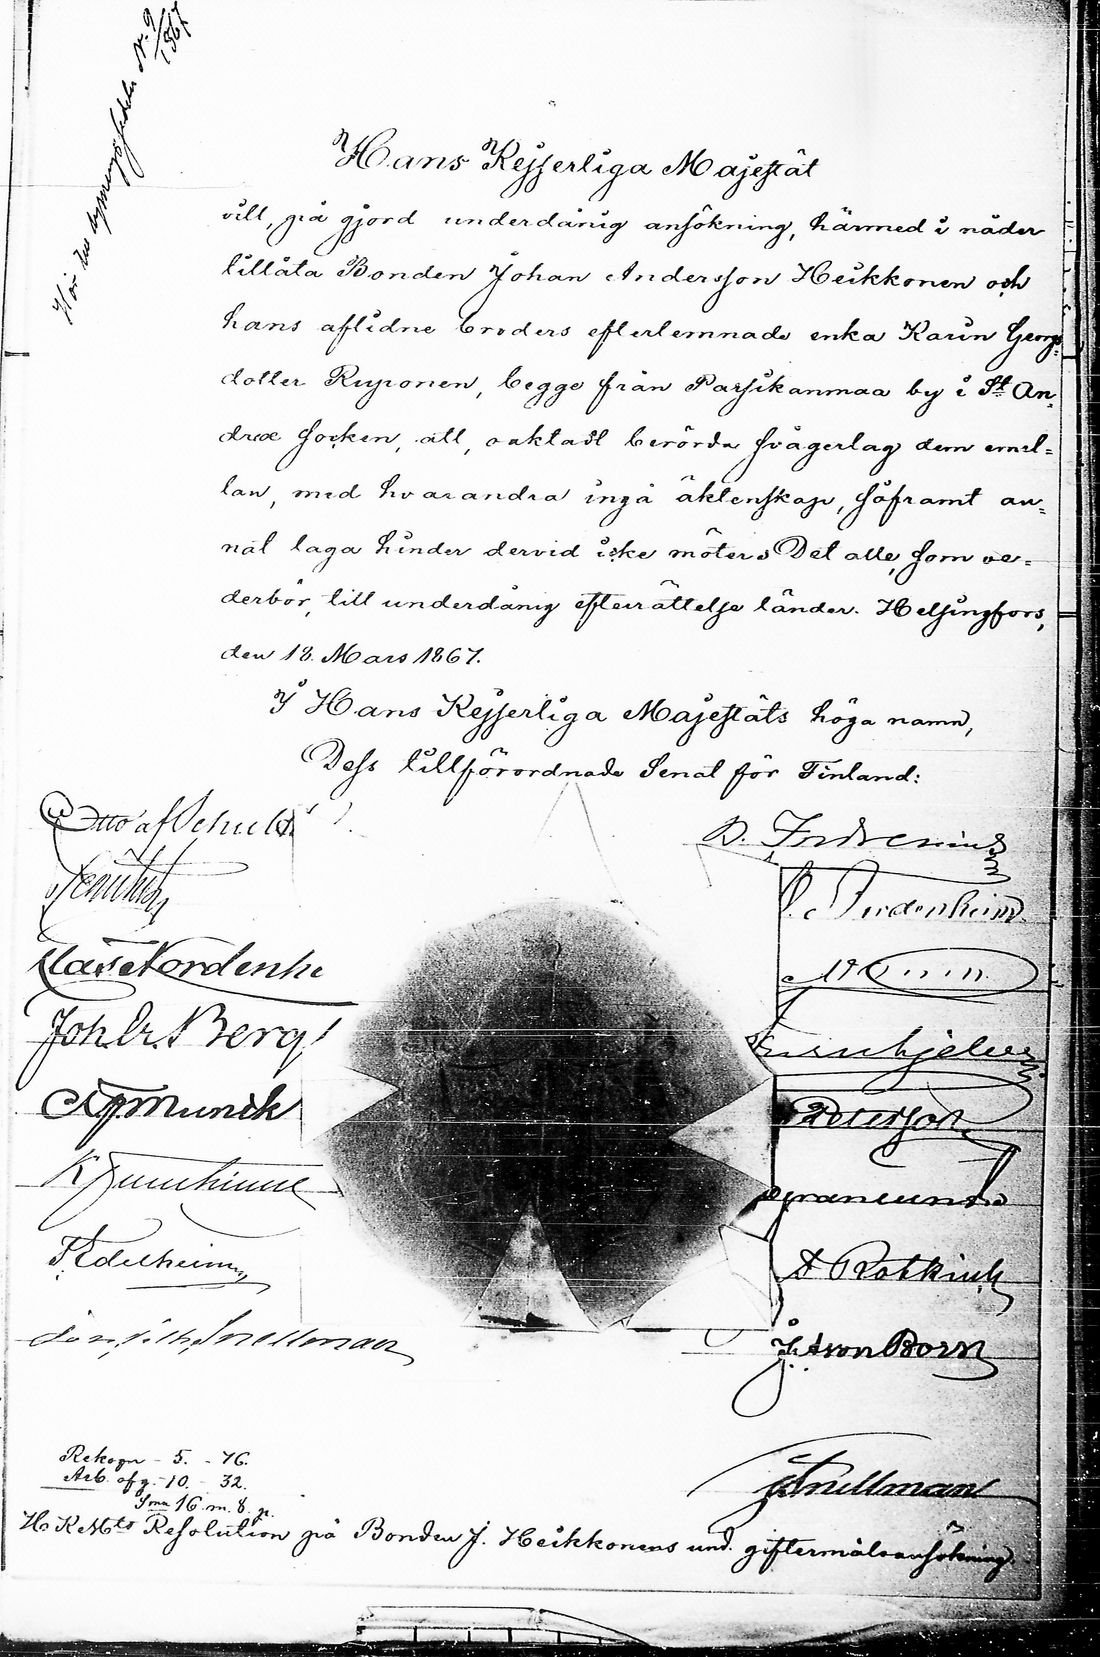 Hör till lysningssedeln N:o 9/1867
Hans Kejserliga Majestät
vill, på gjord underdånig ansökning, härmed i nåder
tillåta Bonden Johan Andersson Heikkonen och
hans aflidne broders efterlemnade enka Karin Georgs=
dotter Ruponen, begge från Parsikanmaa by i S:t An=
dreæ socken, att, oaktadt berörda svågerlag dem emel=
lan, med hvarandra ingå äktenskap, såframt an=
nat laga hinder dervid icke möter. Det alle, som ve=
derbör, till underdånig efterrättelse länder. Helsingfors,
den 18 Mars 1867.
I Hans Kejserliga Majestäts höga namn,
Dess tillförordnade Senat för Finland:
Otto af Schult
B. Indrenius
Clas Nordenhe
Joh. Gr. Berg
Munck
Peterson
Granlund
F. Edelheim
A Rotkirch
Snellman
V. von Born
Rekogn - 5. - 76.
Arb. afg. - 10. - 32.
Sma 16 m. 8. p.
Snellman
H K M:ts Resolution på Bonden J. Heikkonens und. giftermålsansökning.